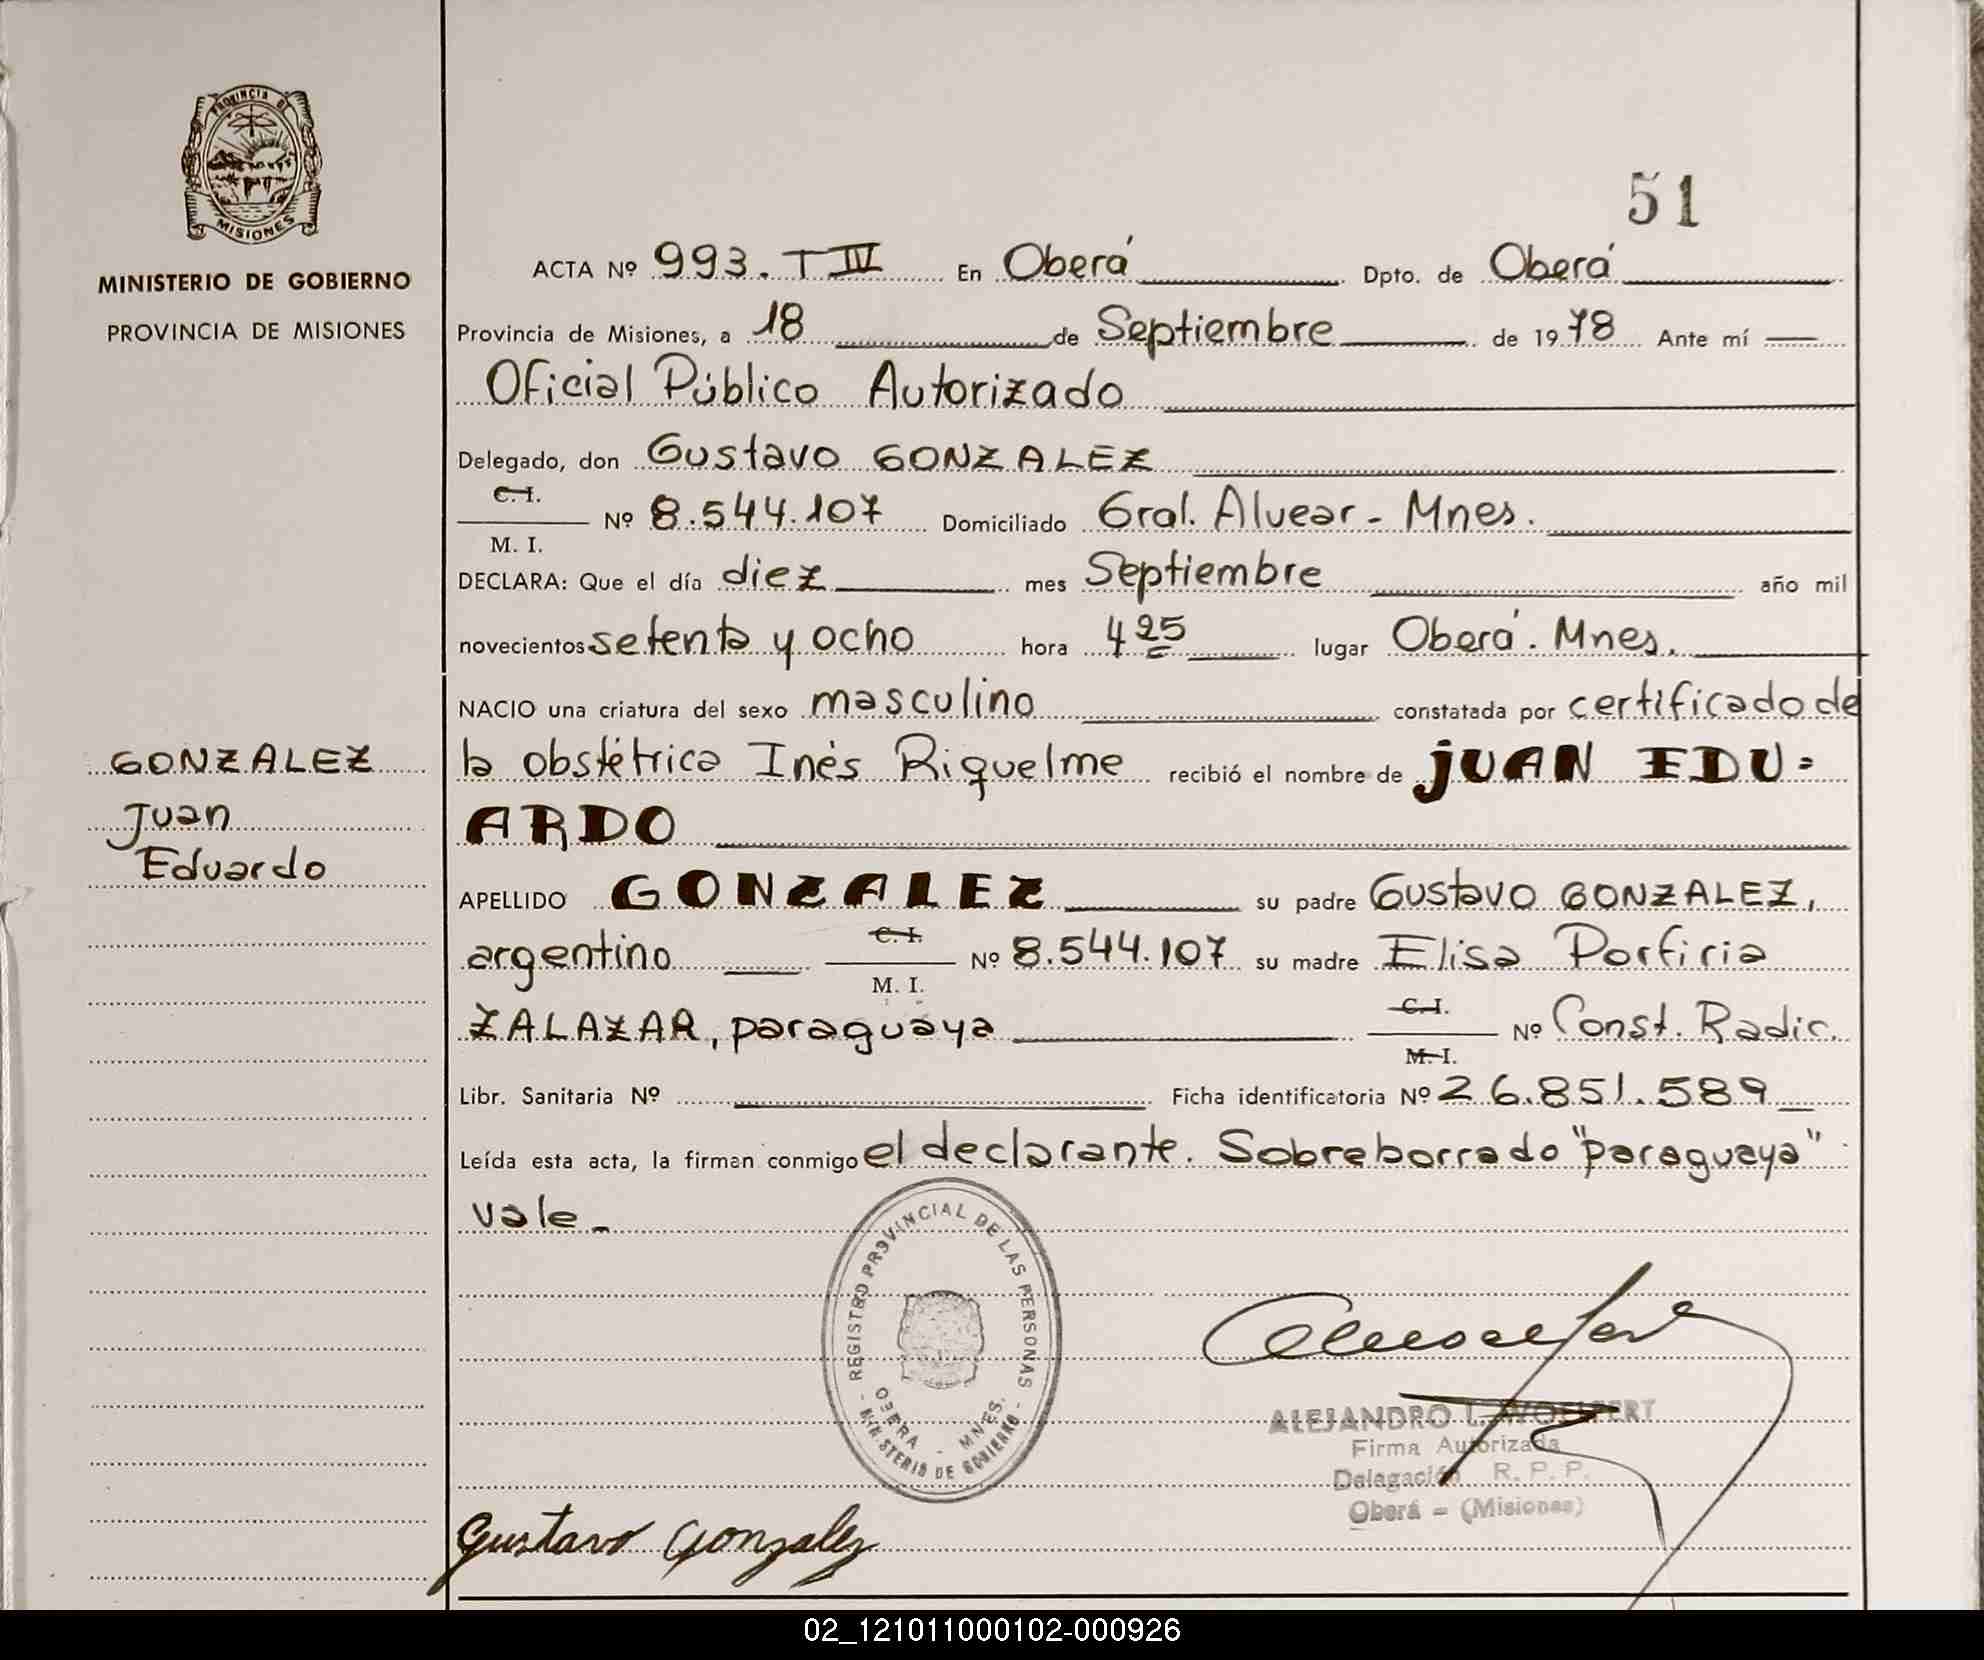 PROVINCIA DE
MISIONES
MINISTERIO DE GOBIERNO
PROVINCIA DE MISIONES
GONZALEZ
Juan
Eduardo
51
ACTA Nº 993. T IV En Oberá Dpto. de Oberá
Provincia de Misiones, a 18 de Septiembre de 1978 Ante mí
Oficial Público Autorizado
Delegado, don Gustavo GONZALEZ
C. I.
Nº 8.544.107 Domiciliado Gral. Alvear - Mnes.
M. I.
DECLARA: Que el día diez mes Septiembre año mil
novecientos setenta y ocho hora 4 25 lugar Oberá. Mnes.
NACIO una criatura del sexo masculino constatada por certificado de
la obstétrica Inés Riquelme recibió el nombre de JUAN EDU=
ARDO
APELLIDO GONZALEZ su padre Gustavo GONZALEZ,
C. I.
argentino Nº 8.544.107 su madre Elisa Porfiria
M. I.
C. I.
ZALAZAR, paraguaya Nº Const. Radic.
M. I.
Libr. Sanitaria Nº Ficha identificatoria Nº 26.851.589
Leída esta acta, la firman conmigo el declarante. Sobreborrado "paraguaya"
vale.-
REGISTRO PROVINCIAL DE LAS PERSONAS
OBERA - MNES.
MINISTERIO DE GOBIERNO
ALEJANDRO L. WOLFERT
Firma Autorizada
Delegación R. P. P.
Oberá - (Misiones)
Gustavo Gonzalez
02_121011000102-000926